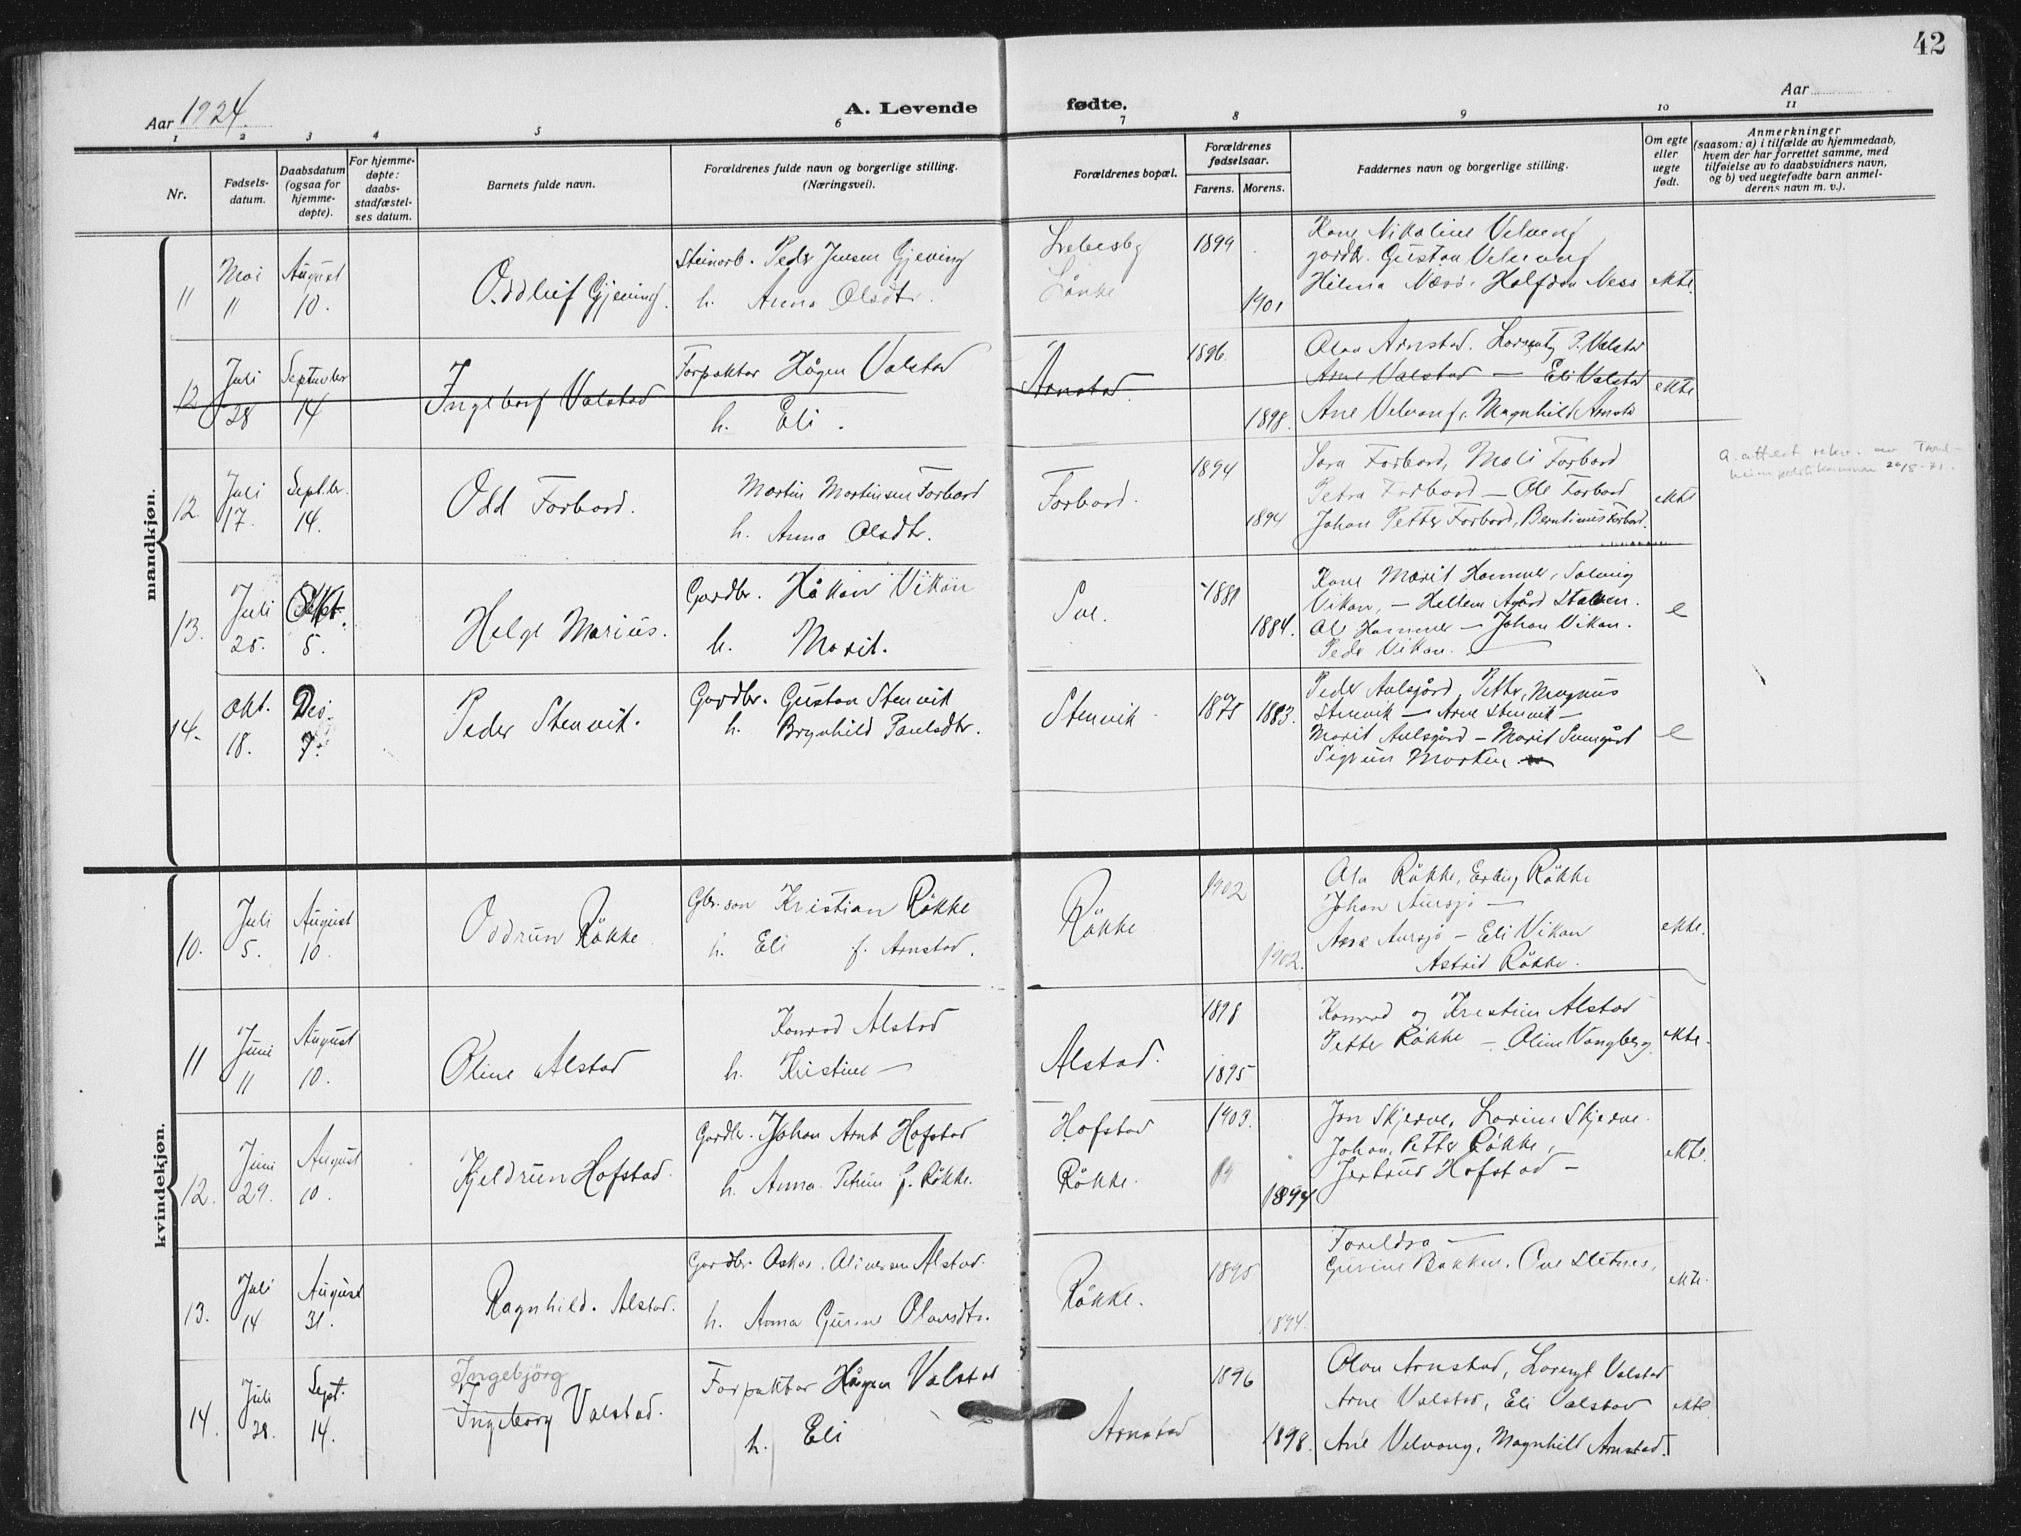 42
Aar 1924.
A. Levende fødte.
Aar
1 2 3 4 5 6 7 8 9 10 11
Nr.
Fødsels-
datum.
Daabsdatum
(ogsaa for
hjemme-
døpte).
For hjemme-
døpte:
daabs-
stadfæstel-
ses datum.
Barnets fulde navn.
Forældrenes fulde navn og borgerlige stilling.
(Næringsvei).
Forældrenes bopæl.
Forældrenes
fødselsaar.
Farens. Morens.
Faddernes navn og borgerlige stilling.
Om egte
eller
uegte
født.
Anmerkninger
(saasom: a) i tilfælde av hjemmedaab,
hvem der har forrettet samme, med
tilføielse av to daabsvidners navn,
og b) ved uegtefødte barn anmel-
derens navn m. v.).
mandkjøn.
11
Mai
11
August
10.
Oddleif Gjeving.
Steinarb. Peder Jensen Gjeving
h. Anna Olsdtr.
Lånke
1899
1901
Kone Nikoline Velvang
gardbr. Gustav Velvang
Hilma Næss. Halfdan Ness
ekte.
12
Juli
28
September
14
Ingeborg Valstad
Forpaktar Hågen Valstad
h. Eli.
Arnstad.
1896.
1898.
Olav Arnstad. Lorents P. Valstad
Arne Valstad — Eli Valstad
Ane Velvang, Magnhild Arnstad
ekte
12.
Juli
17.
Septbr.
14.
Odd Forbord.
Martin Martinsen Forbord
h. Anna Olsdtr.
Forbord.
1894
1894
Sara Forbord, Mali Forbord
Petra Forbord — Ole Forbord
Johan Petter Forbord, Berntinus Forbord.
ekte
13.
Juli
25.
Okt.
5.
Helge Marius.
Gardbr. Håkon Vikan
h. Marit.
1881
1884.
Kone Marit Hammer, Solveig
Vikan, — Hellem
Ole Hammer — Johan Vikan.
Peder Vikan. —
e
14.
Okt.
18.
Des.
7.
Peder Stenvik.
Gardbr. Gustav Stenvik
h. Brynhild Paulsdtr.
Stenvik
1875
1883.
Peder Aulsgård, Petter, Magnus
Stenvik — Arne Stenvik —
Marit Aulsgård — Marit
Sigrun Marken.
e
kvindekjøn.
10.
Juli
5.
August
10.
Oddrun Røkke
Gbr. søn Kristian Røkke
h. Eli f. Arnstad.
Røkke
1902
1902.
Ola Røkke, Erling Røkke
Johan Aursjø —
Aursjø — Eli Vikan
Astrid Røkke.
ekte.
11
Juni
11
August
10.
Oline Alstad
Konrad Alstad
h. Kristine —
Alstad.
1898
1895
Konrad og Kristine Alstad
Petter Røkke — Oline Vangberg.
ekte.
12.
Juni
29.
August
10.
Kjeldrun Hofstad.
Gardbr. Johan Arnt Hofstad
h. Anna Petrine f. Røkke.
Hofstad
Røkke.
1903.
1894
Jon Skjerve, Lorine Skjerve.
Johan, Petter Røkke,
Jertrud Hofstad —
ekte.
13.
Juli
14
August
31.
Ragnhild. Alstad.
Gardbr. Oskar. Oliversen Alstad.
h. Anna Gurine Olausdtr.
Røkke.
1895
1894.
Foreldra —
Gurine Bakken. Ove Sletnes,
ekte.
14.
Juli
28.
Sept.
14.
Ingebjörg
Ingeborg Valstad.
Forpaktar Hågen Valstad
h. Eli
Arnstad
1896
1898.
Olav Arnstad, Lorengt Valstad
Arne Valstad, Eli Valstad
Ane Velvang, Magnhild Arnstad.
ekte.